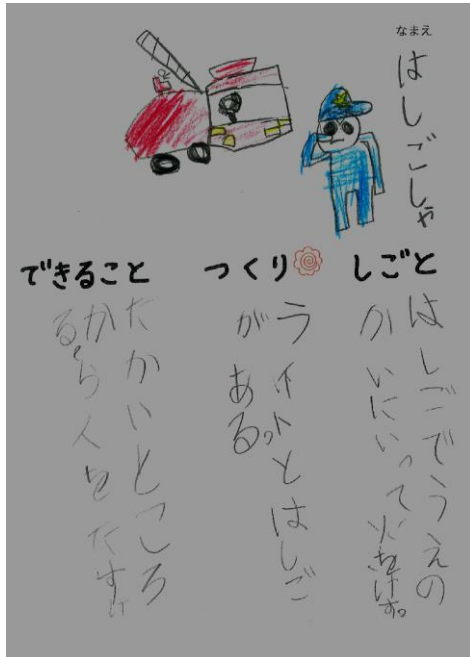 なまえ
はしごしゃ
しごと
はしごでうえの
かいにいって火をけす。
つくり
ライトとはしご
がある。
できること
たかいところ
から人をたすけ
る。